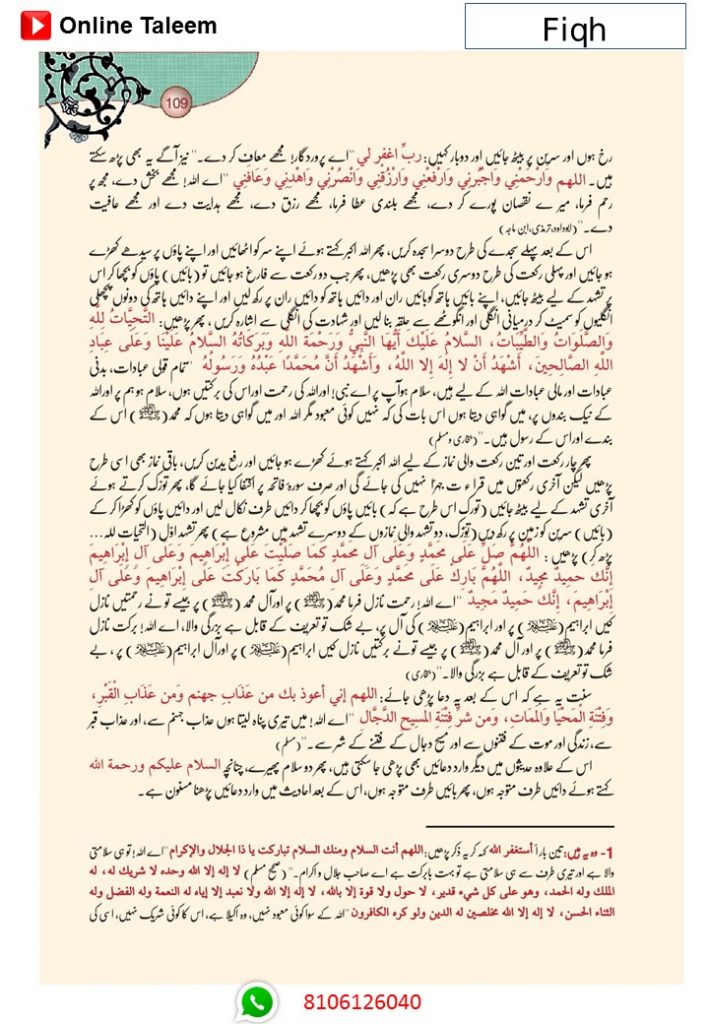 Online Taleem
Fiqh
109
رخ ہوں اور سرین پر بیٹھ جائیں اور دوبار کہیں: ربِّ اغفر لي "اے پروردگار! مجھے معاف کر دے۔" نیز آگے یہ بھی پڑھ سکتے
ہیں۔ اللهم وَارْحَمْنِي وَاجْبُرْنِي وَارْفَعْنِي وَارْزُقْنِي وَانْصُرْنِي وَاهْدِنِي وَعَافِنِي "اے اللہ! مجھے بخش دے، مجھ پر
رحم فرما، میرے نقصان پورے کر دے، مجھے بلندی عطا فرما، مجھے رزق دے، مجھے ہدایت دے اور مجھے عافیت
دے۔" (ابوداود، ترمذی، ابن ماجہ)
اس کے بعد پہلے سجدے کی طرح دوسرا سجدہ کریں، پھر اللہ اکبر کہتے ہوئے اپنے سر کو اٹھائیں اور اپنے پاؤں پر سیدھے کھڑے
ہو جائیں اور پہلی رکعت کی طرح دوسری رکعت بھی پڑھیں، پھر جب دو رکعت سے فارغ ہو جائیں تو (بائیں) پاؤں کو بچھا کر اس
پر تشہد کے لیے بیٹھ جائیں، اپنے بائیں ہاتھ کو بائیں ران اور دائیں ہاتھ کو دائیں ران پر رکھ لیں اور اپنے دائیں ہاتھ کی دونوں پچھلی
انگلیوں کو سمیٹ کر درمیانی انگلی اور انگوٹھے سے حلقہ بنا لیں اور شہادت کی انگلی سے اشارہ کریں، پھر پڑھیں: التَّحِيَّاتُ لِلَّهِ
وَالصَّلَوَاتُ وَالطَّيِّبَاتُ، السَّلَامُ عَلَيْكَ أَيُّهَا النَّبِيُّ وَرَحْمَةُ اللَّهِ وَبَرَكَاتُهُ السَّلَامُ عَلَيْنَا وَعَلَى عِبَادِ
اللَّهِ الصَّالِحِينَ، أَشْهَدُ أَنْ لَا إِلَهَ إِلَّا اللَّهُ، وَأَشْهَدُ أَنَّ مُحَمَّدًا عَبْدُهُ وَرَسُولُهُ "تمام قولی عبادات، بدنی
عبادات اور مالی عبادات اللہ کے لیے ہیں، سلام ہو آپ پر اے نبی! اور اللہ کی رحمت اور اس کی برکتیں ہوں، سلام ہو ہم پر اور اللہ
کے نیک بندوں پر، میں گواہی دیتا ہوں اس بات کی کہ نہیں کوئی معبود مگر اللہ اور میں گواہی دیتا ہوں کہ محمد (ﷺ) اس کے
بندے اور اس کے رسول ہیں۔" (بخاری و مسلم)
پھر چار رکعت اور تین رکعت والی نماز کے لیے اللہ اکبر کہتے ہوئے کھڑے ہو جائیں اور رفع یدین کریں، باقی نماز بھی اسی طرح
پڑھیں لیکن آخری رکعتوں میں قراءت جہراً نہیں کی جائے گی اور صرف سورۂ فاتحہ پر اکتفا کیا جائے گا، پھر تورّک کرتے ہوئے
آخری تشہد کے لیے بیٹھ جائیں (تورک اس طرح ہے کہ) بائیں پاؤں کو بچھا کر دائیں طرف نکال لیں اور دائیں پاؤں کو کھڑا کر کے
(بائیں) سرین کو زمین پر رکھ دیں (تورّک، دو تشہد والی نمازوں کے دوسرے تشہد میں مشروع ہے) پھر تشہد اوّل (التحیات للہ...
پڑھ کر) پڑھیں: اللَّهُمَّ صَلِّ عَلَى مُحَمَّدٍ وَعَلَى آلِ مُحَمَّدٍ كَمَا صَلَّيْتَ عَلَى إِبْرَاهِيمَ وَعَلَى آلِ إِبْرَاهِيمَ
إِنَّكَ حَمِيدٌ مَجِيدٌ، اللَّهُمَّ بَارِكْ عَلَى مُحَمَّدٍ وَعَلَى آلِ مُحَمَّدٍ كَمَا بَارَكْتَ عَلَى إِبْرَاهِيمَ وَعَلَى آلِ
إِبْرَاهِيمَ، إِنَّكَ حَمِيدٌ مَجِيدٌ "اے اللہ! رحمت نازل فرما محمد (ﷺ) پر اور آل محمد (ﷺ) پر جیسے تو نے رحمتیں نازل
کیں ابراہیم (علیہ السلام) پر اور ابراہیم (علیہ السلام) کی آل پر، بے شک تو تعریف کے قابل ہے بزرگی والا، اے اللہ! برکت نازل
فرما محمد (ﷺ) پر اور آل محمد (ﷺ) پر جیسے تو نے برکتیں نازل کیں ابراہیم (علیہ السلام) پر اور آل ابراہیم (علیہ السلام) پر، بے
شک تو تعریف کے قابل ہے بزرگی والا۔" (بخاری)
سنت یہ ہے کہ اس کے بعد یہ دعا پڑھی جائے: اللهم إني أعوذ بك من عذابِ جهنم وَمِن عَذَابِ القَبْرِ،
وَفِتْنَةِ المَحْيَا وَالمَمَاتِ، وَمن شرِّ فِتْنَةِ المَسِيحِ الدَّجَّالِ "اے اللہ! میں تیری پناہ لیتا ہوں عذاب جہنم سے، اور عذاب قبر
سے، زندگی اور موت کے فتنوں سے اور مسیح دجال کے فتنے کے شر سے۔" (مسلم)
اس کے علاوہ حدیثوں میں دیگر وارد دعائیں بھی پڑھی جا سکتی ہیں، پھر دو سلام پھیرے، چنانچہ السلام عليكم ورحمة الله
کہتے ہوئے دائیں طرف متوجہ ہوں، پھر بائیں طرف متوجہ ہوں، اس کے بعد احادیث میں وارد دعائیں پڑھنا مسنون ہے۔
1- وہ یہ ہیں: تین بار أستغفر الله کہہ کر یہ ذکر پڑھیں: اللهم أنت السلام ومنك السلام تباركت يا ذا الجلال والإكرام "اے اللہ! تو ہی سلامتی
والا ہے اور تیری طرف سے ہی سلامتی ہے تو بہت بابرکت ہے اے صاحب جلال و اکرام۔" (صحیح مسلم) لا إله إلا الله وحده لا شريك له، له
الملك وله الحمد، وهو على كل شيء قدير، لا حول ولا قوة إلا بالله، لا إله إلا الله ولا نعبد إلا إياه له النعمة وله الفضل وله
الثناء الحسن، لا إله إلا الله مخلصين له الدين ولو كره الكافرون "اللہ کے سوا کوئی معبود نہیں، وہ اکیلا ہے، اس کا کوئی شریک نہیں، اسی کی
8106126040